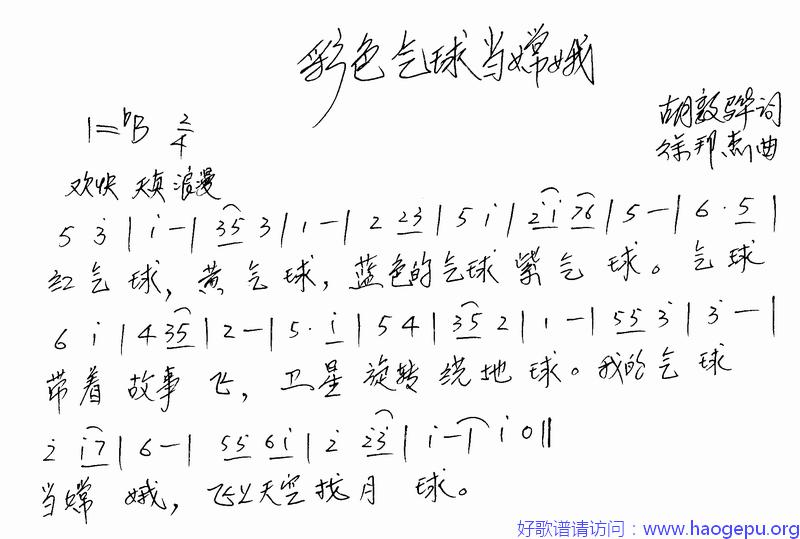 彩色气球当嫦娥
1=♭B 2/4
胡敦骅词
徐邦杰曲
欢快 天真 浪漫
5 3̇ | i - | 35 3 | 1 - | 2 23 | 5 i | 2̇i 76 | 5 - | 6 · 5 |
红气球, 黄气球, 蓝色的气球紫气球。气球
6 i | 4 35 | 2 - | 5 · i | 5 4 | 35 2 | 1 - | 55 3̇ | 3̇ - |
带着故事飞, 卫星旋转绕地球。我的气球
2̇ i7 | 6 - | 55 6i | 2̇ 2̇3̇ | i - | i 0 ‖
当嫦娥, 飞上天空找月球。
好歌谱请访问：www.haogepu.org